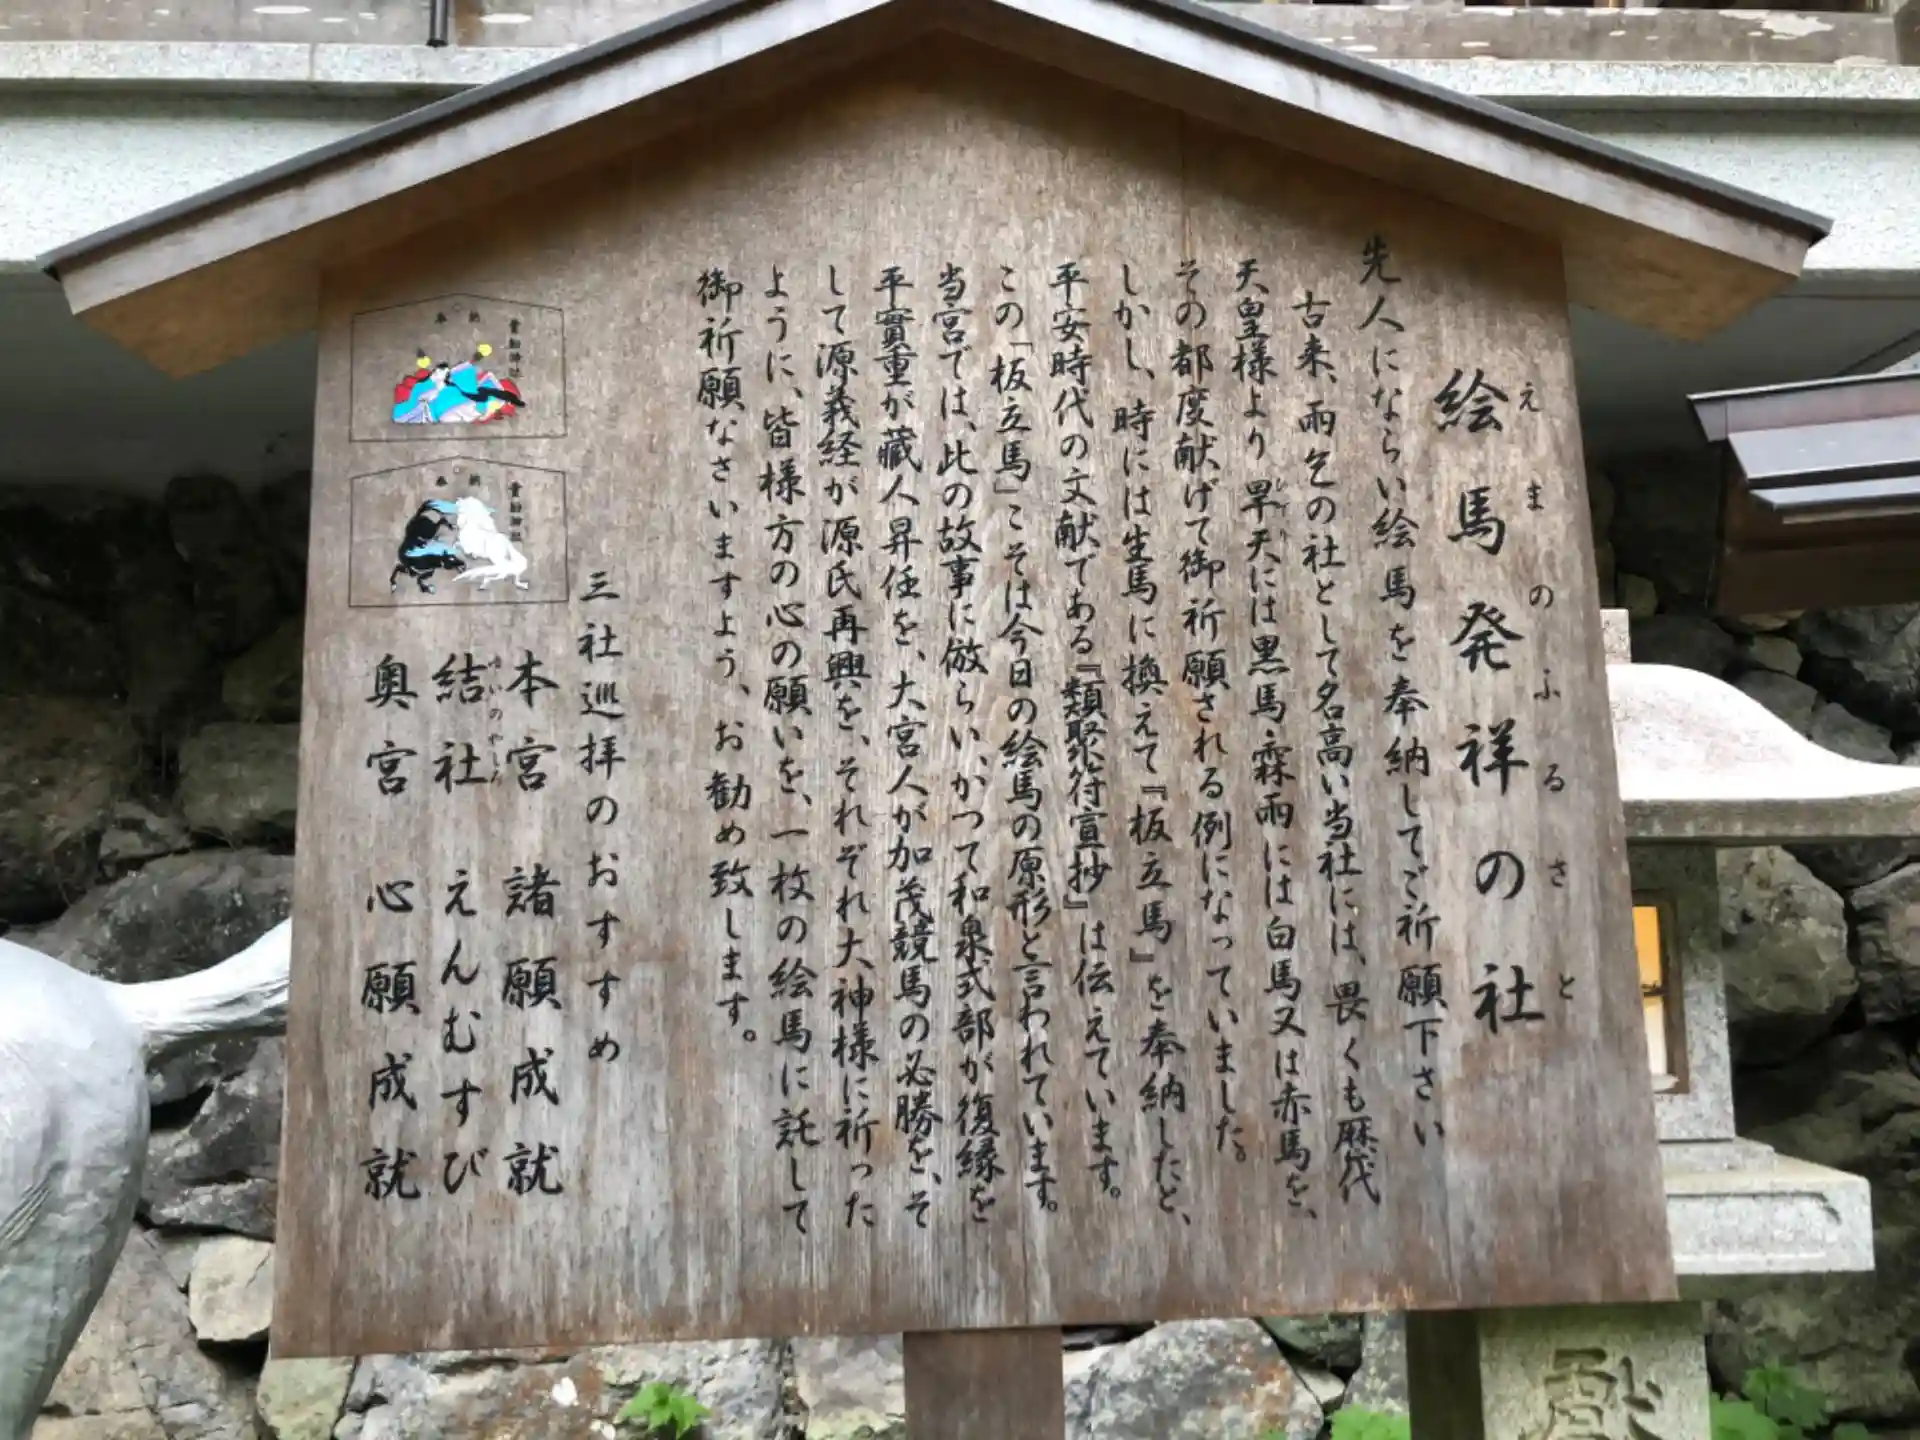 絵馬発祥の社
えまのふるさと
先人にならい絵馬を奉納してご祈願下さい
古来、雨乞の社として名高い当社には、畏くも歴代
天皇様より旱天には黒馬霖雨には白馬又は赤馬を、
その都度献げて御祈願される例になっていました。
しかし、時には生馬に換えて『板立馬』を奉納したと、
平安時代の文献である『類聚符宣抄』は伝えています。
この「板立馬」こそは今日の絵馬の原形と言われています。
当宮では、此の故事に倣らい、かつて和泉式部が復縁を
平實重が蔵人昇任を、大宮人が加茂競馬の必勝を、そ
して源義経が源氏再興を、それぞれ大神様に祈った
ように、皆様方の心の願いを、一枚の絵馬に託して
御祈願なさいますよう、お勧め致します。
三社巡拝のおすすめ
本宮 諸願成就
結社 えんむすび
ゆいのやしろ
奥宮 心願成就
奉納
貴船神社
奉納
貴船神社
献